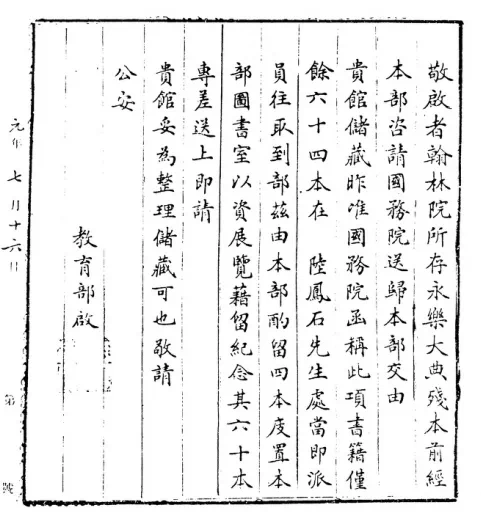 敬啟者翰林院所存永樂大典殘本前經
本部咨請國務院送歸本部交由
貴館儲藏昨准國務院函稱此項書籍僅
餘六十四本在 陸鳳石先生處當即派
員往取到部茲由本部酌留四本庋置本
部圖書室以資展覽藉留紀念其六十本
專差送上即請
貴館妥為整理儲藏可也敬請
公安
教育部啟
元年 七 月十六日
第 號